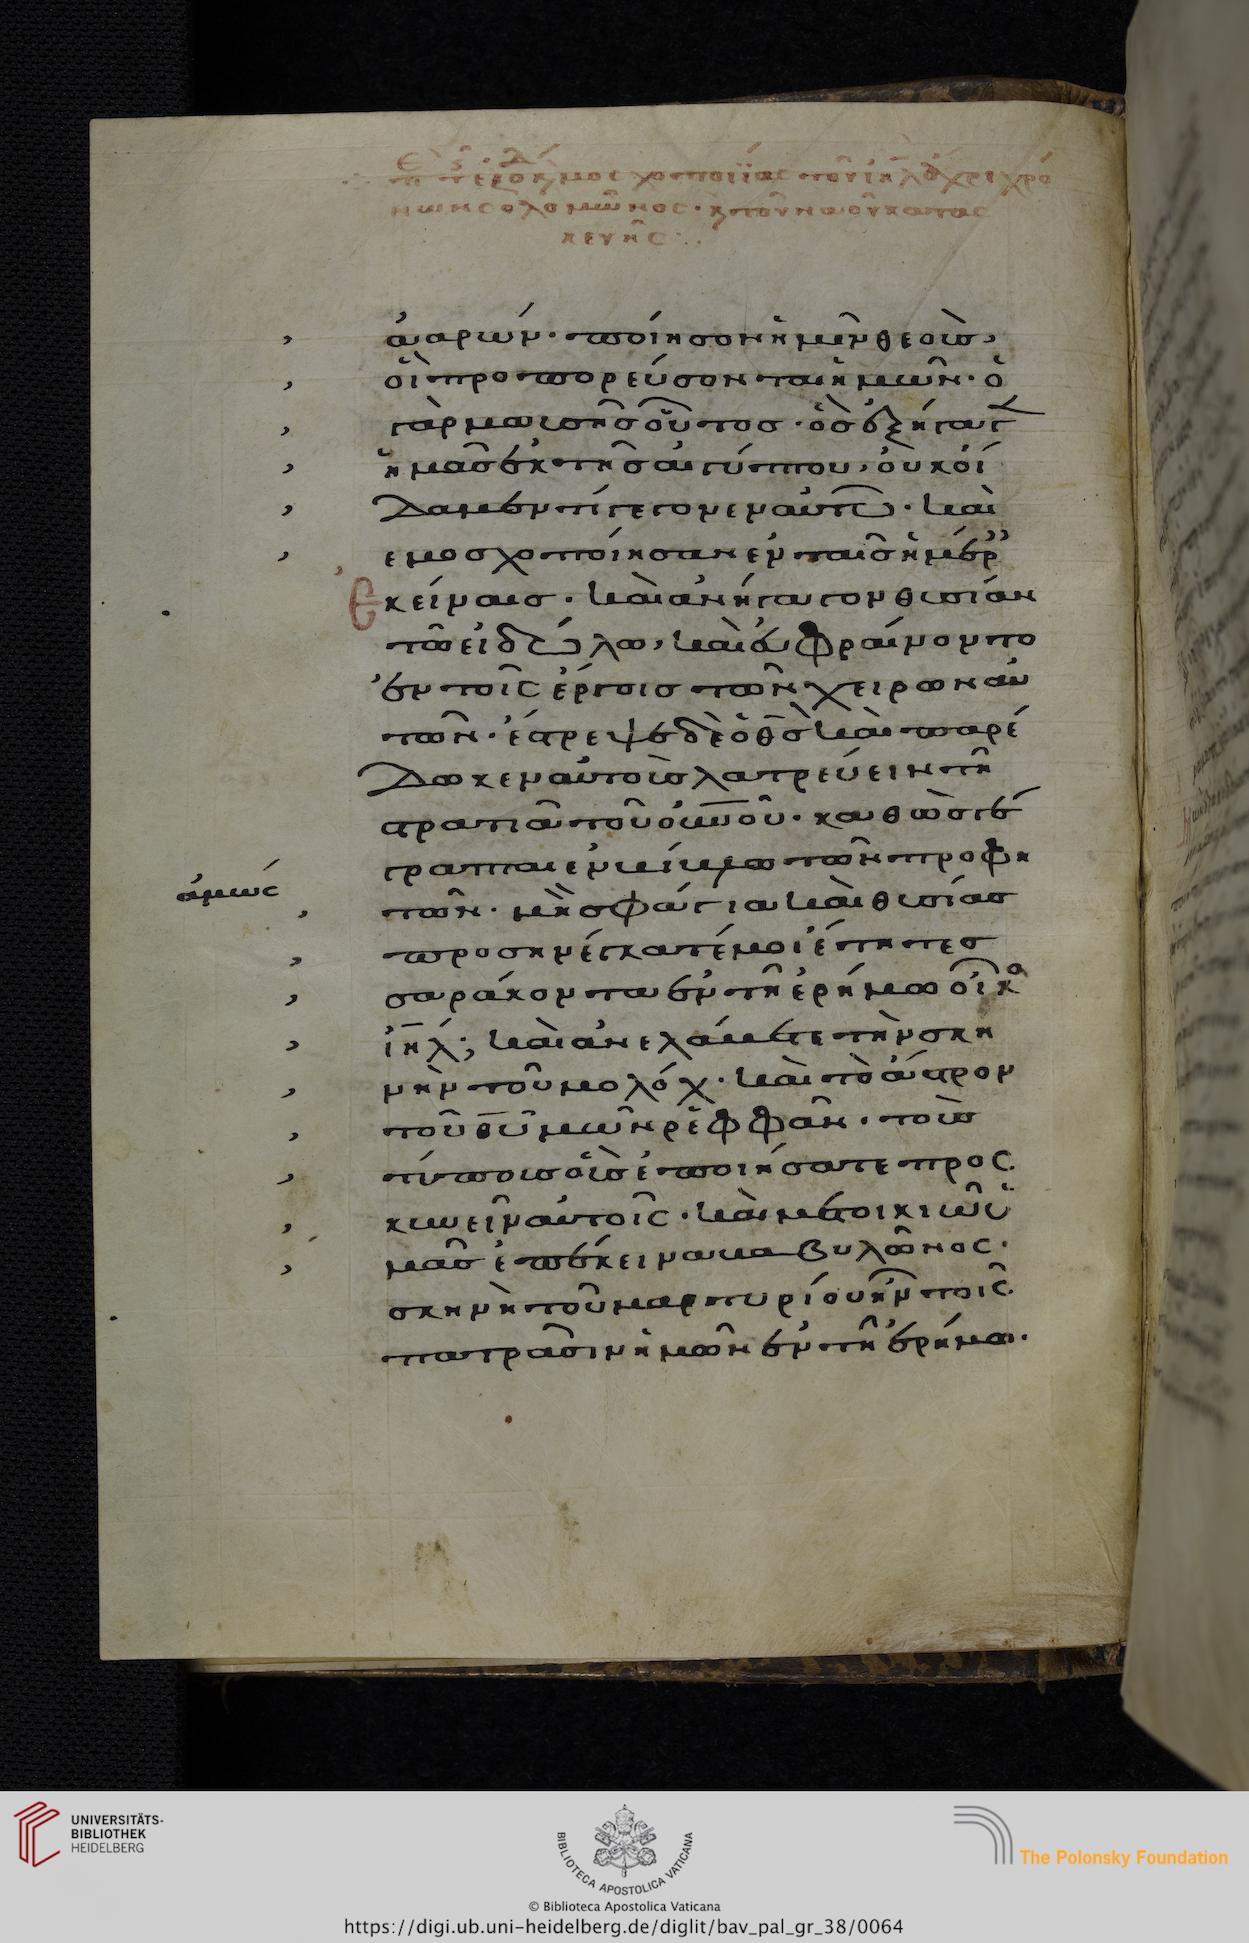 ἀαρών· ποίησον ἡμῖν θεοὺς,
οἳ προπορεύσονται ἡμῶν· ὁ
γὰρ μωυσῆς οὗτος· ὃς ἐξήγαγ
ἡμᾶς ἐκ γῆς αἰγύπτου, οὐκ οἴ
δαμεν τί γέγονεν αὐτῷ· καὶ
εμοσχοποίησαν ἐν ταῖς ἡμέρ
ἐκείναις· καὶ ἀνήγαγον θυσίαν
τῷ εἰδώλω, καὶ εὐφραίνοντο
ἐν τοῖς ἔργοις τῶν χειρων αὐ
τῶν· ἔστρεψε δὲ ὁ θ̅ς̅ καὶ παρέ
δωκεν αὐτοὺς λατρεύειν τῆ
στρατιᾶ τοῦ ο̅υ̅ν̅ο̅υ̅· καθὼς γέ
γραπται ἐν βίβλω τῶν προφη
ἀμώς
τῶν· μὴ σφάγια καὶ θυσίας
προσηνέγκατέ μοι ἔτη τεσ
σαράκοντα ἐν τῆ ἐρήμω οἶκο
ι̅η̅λ̅; καὶ ἀνελάβετε τὴν σκη
νὴν τοῦ μολόχ· καὶ τὸ ἄστρον
τοῦ θ̅υ̅ ὑμῶν ῥεφφᾶν· τοὺς
τύπους οὓς ἐποιήσατε προς
κυνεῖν αὐτοῖς· καὶ μετοικιῶ ὑ
μᾶς ἐπέκεινα βαβυλῶνος·
σκηνὴ τοῦ μαρτυρίου ἦν τοῖς
πατράσιν ἡμῶν ἐν τῆ ἐρήμω·
UNIVERSITÄTS-
BIBLIOTHEK
HEIDELBERG
BIBLIOTECA APOSTOLICA VATICANA
© Biblioteca Apostolica Vaticana
The Polonsky Foundation
https://digi.ub.uni-heidelberg.de/diglit/bav_pal_gr_38/0064